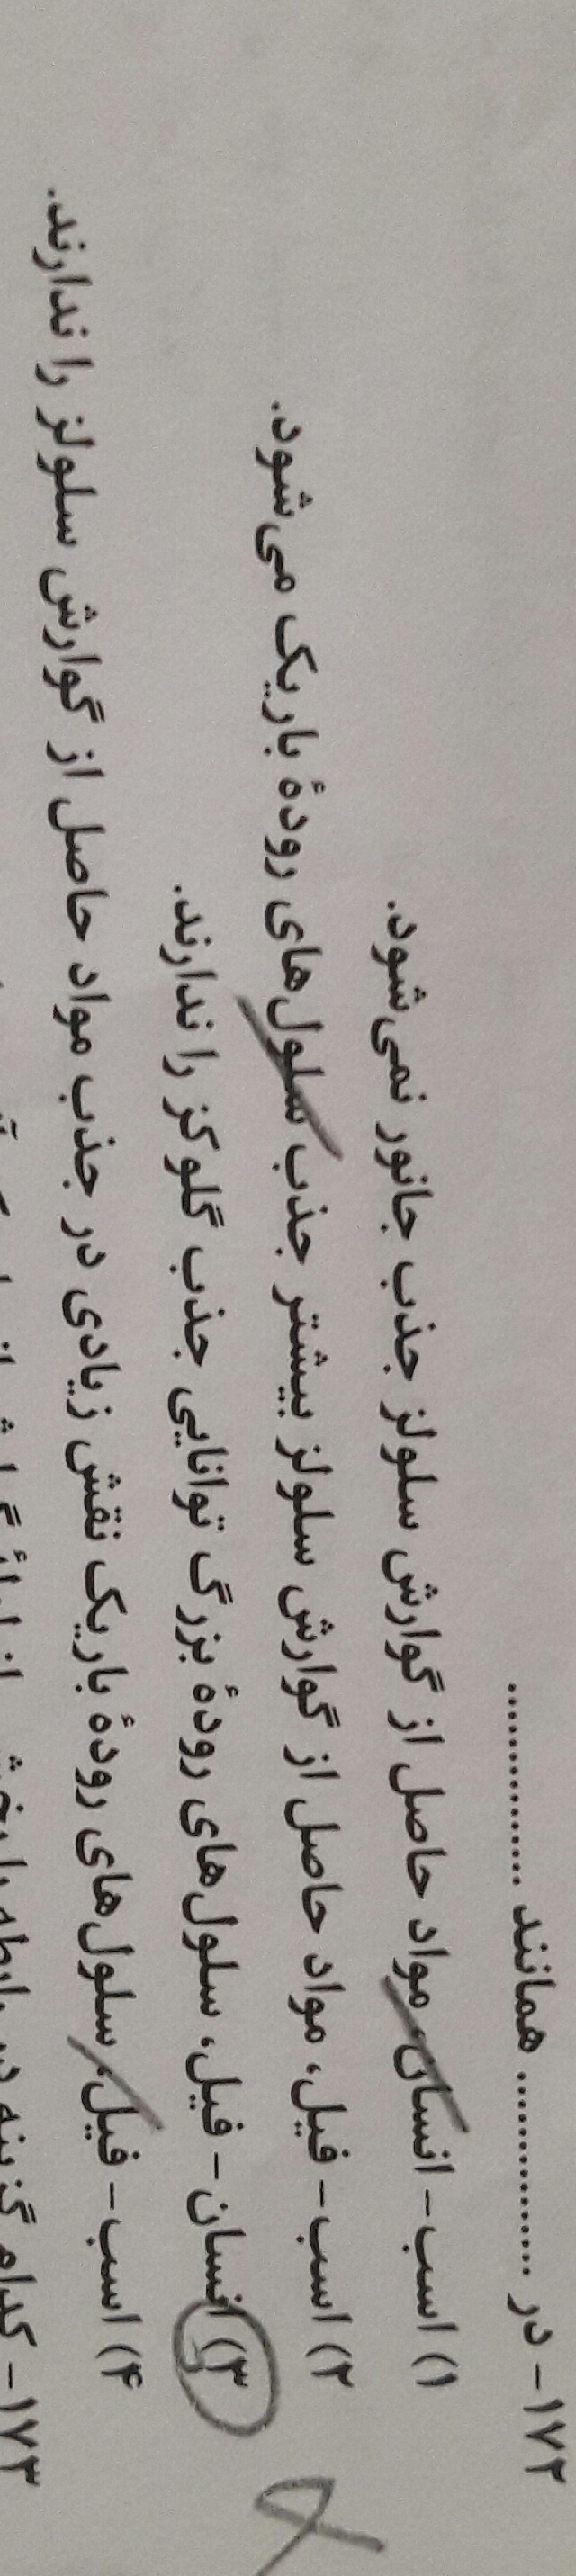 ۱۷۲- در ................ همانند ................
۱) اسب - انسان، مواد حاصل از گوارش سلولز جذب جانور نمی‌شود.
۲) اسب - فیل، مواد حاصل از گوارش سلولز بیشتر جذب سلول‌های رودهٔ باریک می‌شود.
۳) انسان - فیل، سلول‌های رودهٔ بزرگ توانایی جذب گلوکز را ندارند.
۴) اسب - فیل، سلول‌های رودهٔ باریک نقش زیادی در جذب مواد حاصل از گوارش سلولز را ندارند.
۱۷۳- کدام گزینه در رابطه با